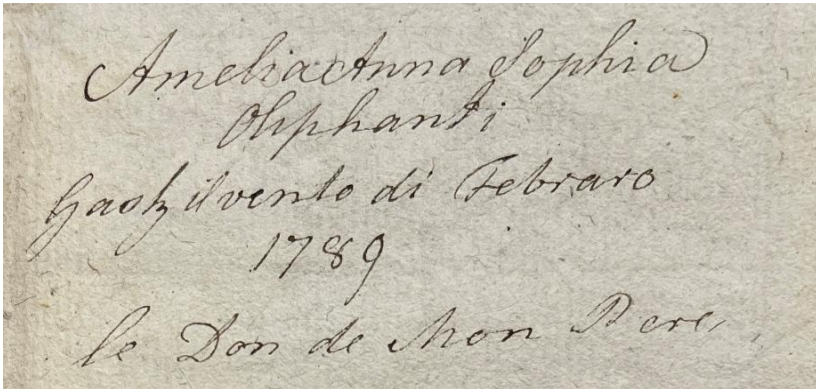 Amelia Anna Sophia
Oliphanti
Gask il vento di Febraro
1789
le Don de Mon Pere,